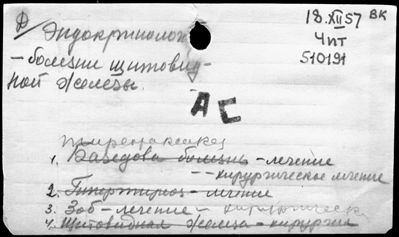 Д/ Эндокринолог 18.XII57 ВК
– болезни щитовид- Чит
ной железы. 510191
АС
тиреотоксикоз
1. Базедова болезнь – лечение
– – хирургическое лечение
2. Гипертиреоз – лечение
3. Зоб – лечение – хирургическ
4. Щитовидная железа – хирургия